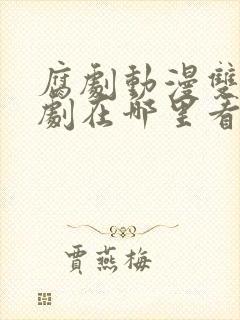 腐劇動漫雙
劇在哪里看
賈燕梅